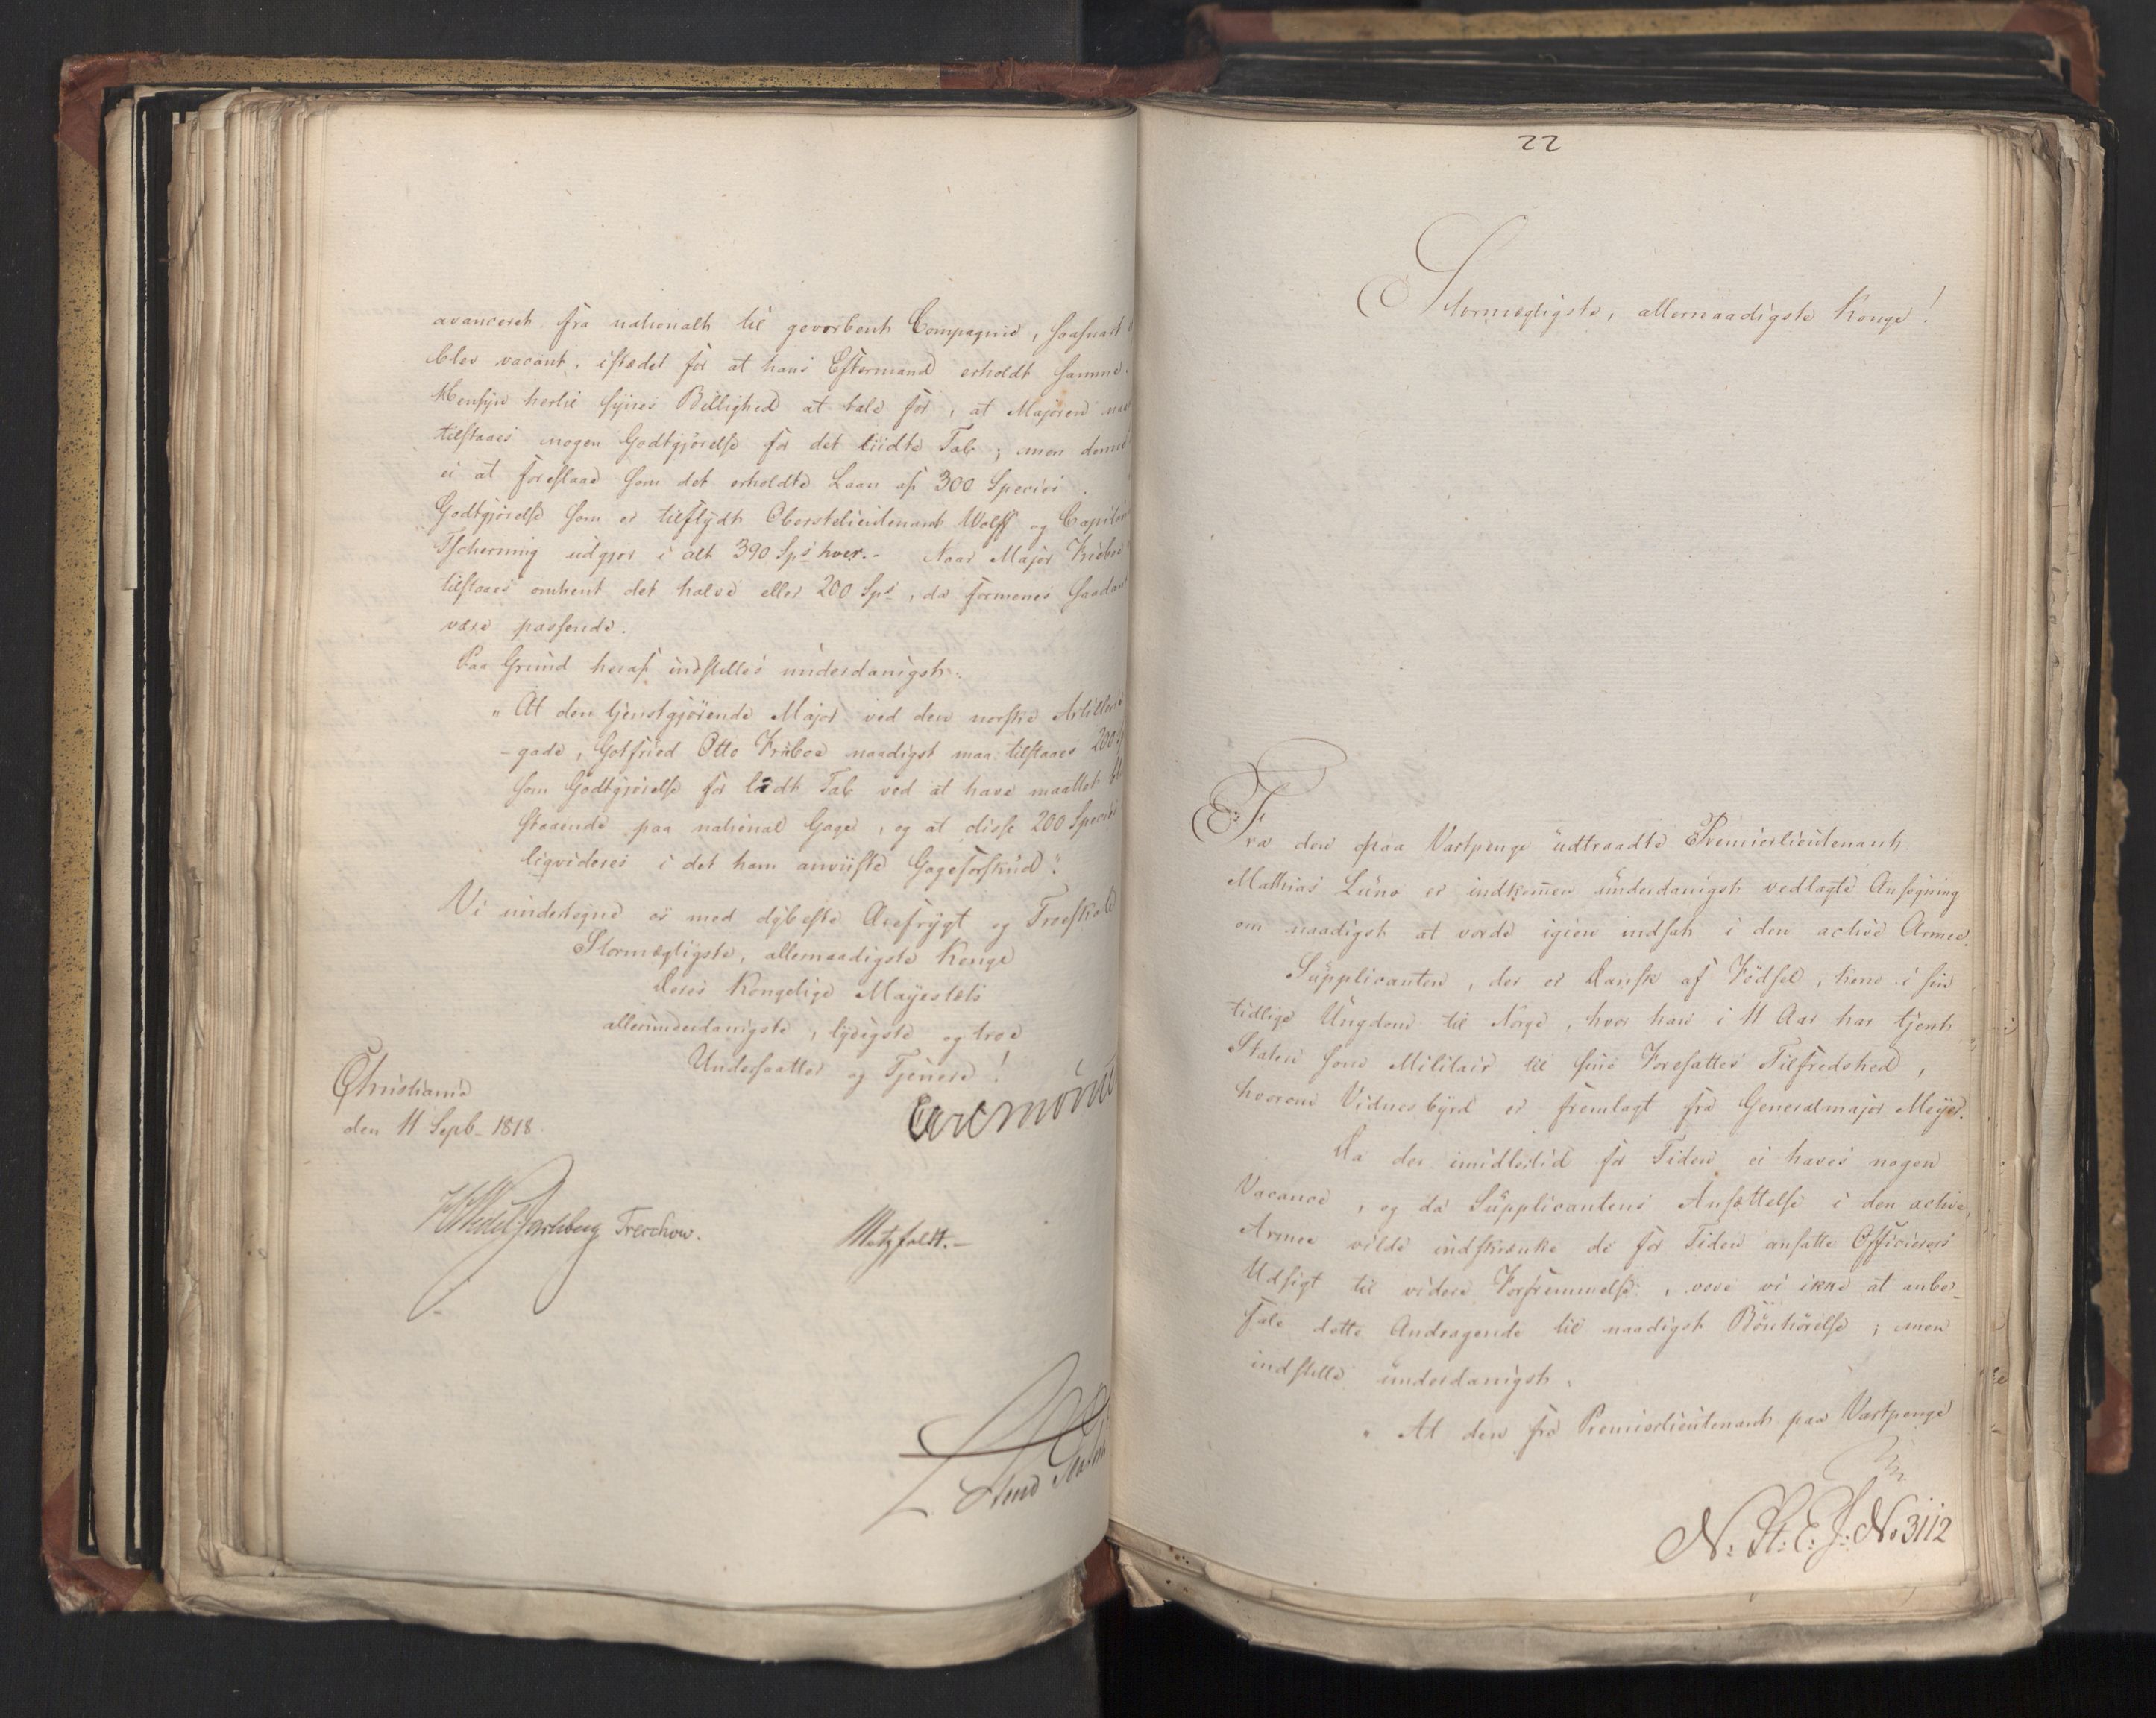 avanceret fra nationalt til gevorbent Compagnie, saasnart
blev vacant, istedet for at hans Eftermand erholdt samme.
Hensyn hertil synes Billighed at tale for, at Majoren
tilstaaes nogen Godtgjørelse for det liidte Tab; men denne
ei at foreslaae som det erholdte Laan af 300 Species.
Godtgjørelse som er tilflydt Oberstelieutenant Wolff og Capitain
Tscherning udgjør i alt 390 Sps hver.- Naar Major Kreboe
tilstaaes omtrent det halve eller 200 Sps, da formenes saadant
være passende.
Paa Grund heraf indstilles underdanigst:
"At den tjenstgjørende Major ved den norske Artillerie
-gade, Gotfried Otto Kreboe naadigst maa tilstaaes 200
som Godtgjørelse for lidt Tab ved at have maattet
staaende paa national Gage, og at disse 200 Species
liqvideres i det ham anviiste Gageforskud".
Vi undertegne os med dybeste Ærefrygt og Troeskab
Stormægtigste, allernaadigste Konge
Deres Kongelige Mayestæts
allerunderdanigste, lydigste og troe
Undersaatter og Tjenere!
Christiania
den 11 Septb. 1818.
Carl Mörner
HWedel Jarlsberg Treschow.
Motzfeldt.-
22
Stormægtigste, allernaadigste Konge!
Fra den paa Vartpenge udtraadte Premierlieutenant
Mathias Luno er indkom̄en underdanigst vedlagte Ansøgning
om naadigst at vorde igien indsat i den active Armee.
Supplicanten, der er Dansk af Fødsel, kom i sin
tidlige Ungdom til Norge, hvor han i 11 Aar har tjent
Staten som Militair til sine Foresattes Tilfredshed,
hvorom Vidnesbyrd er fremlagt fra Generalmajor Meyer.
Da der imidlertid for Tiden ei haves nogen
Vacance, og da Supplicantens Ansættelse i den active
Armee vilde indskrænke de for Tiden ansatte Officierers
Udsigt til videre Forfremmelse, vove vi ikke at anbe-
fale dette Andragende til naadigst Bønhørelse; men
indstille underdanigst:
"At den fra Premierlieutenant paa Vartpenge
N: St: E: J: No 3112